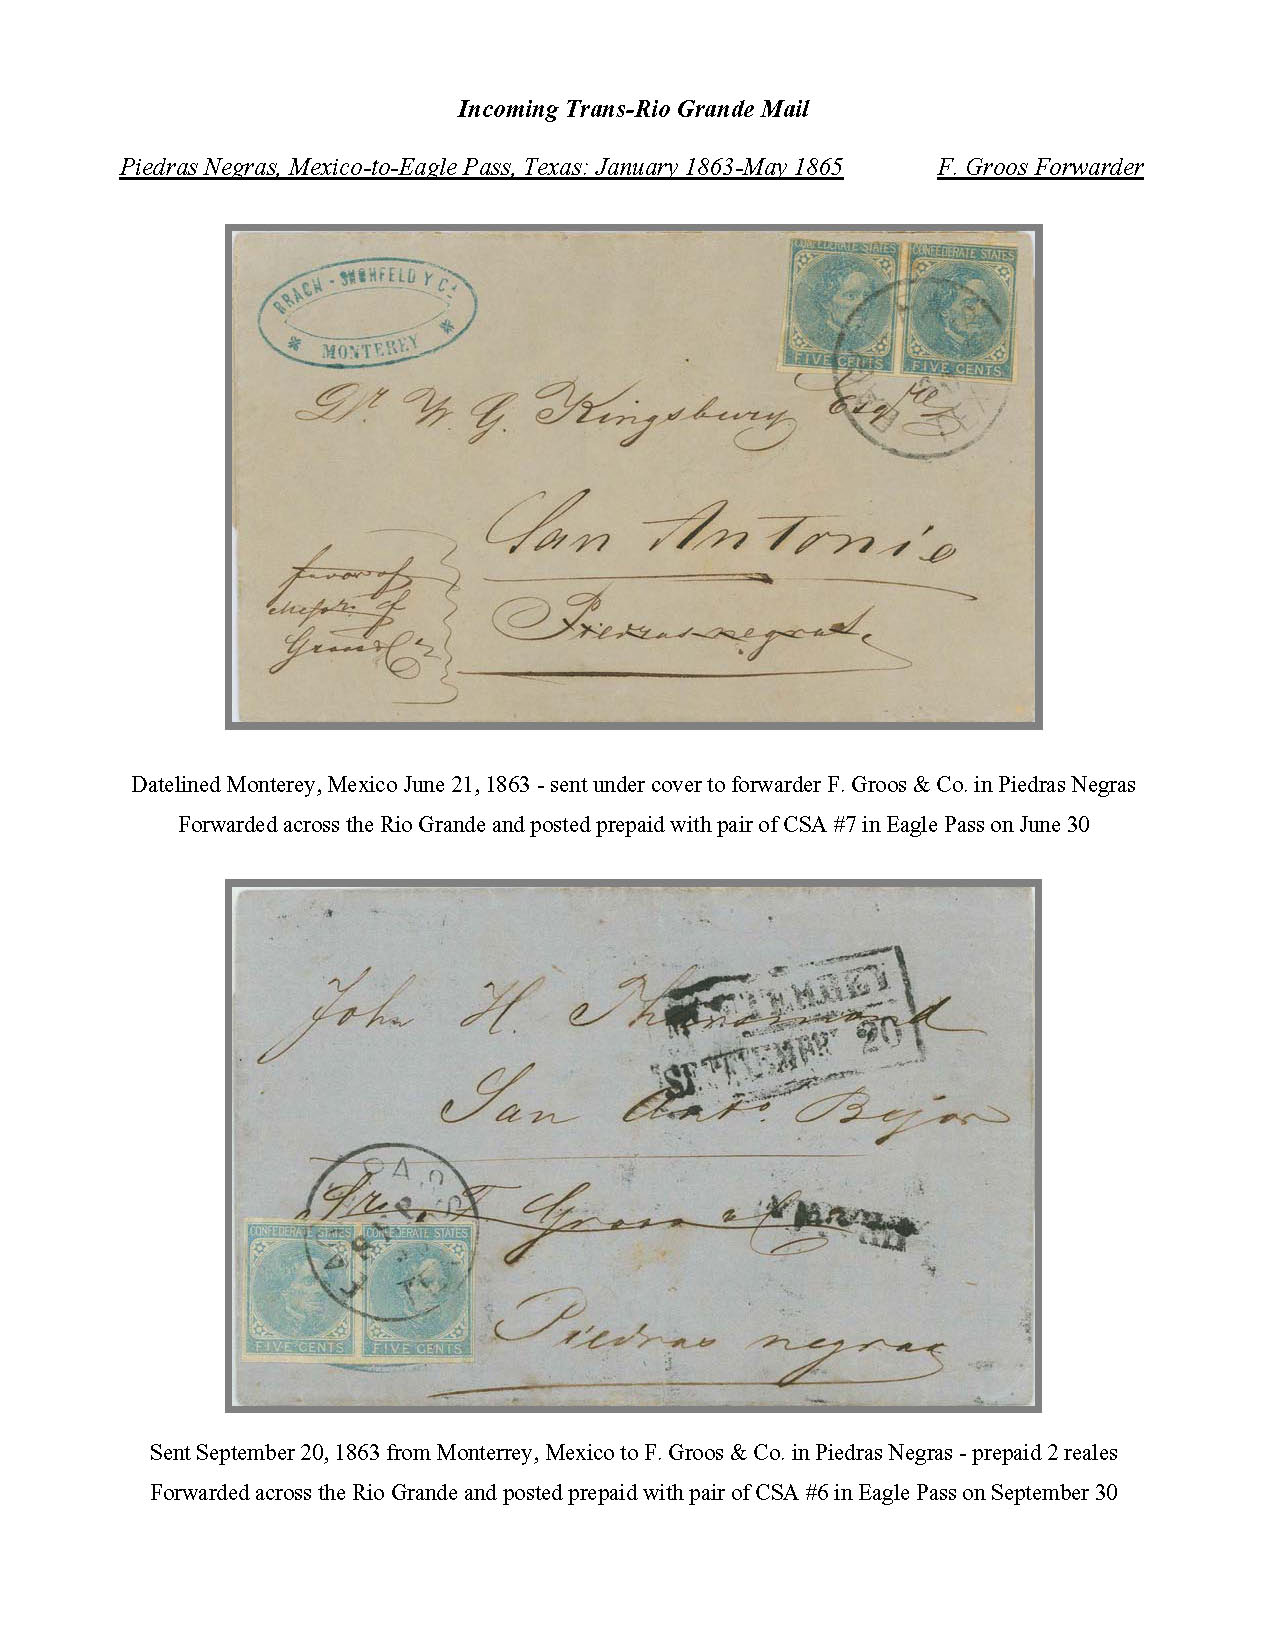 Incoming Trans-Rio Grande Mail
Piedras Negras, Mexico-to-Eagle Pass, Texas: January 1863-May 1865 F. Groos Forwarder
BRACH - SCHÖNFELD Y Cª
MONTEREY
CONFEDERATE STATES CONFEDERATE STATES
FIVE CENTS FIVE CENTS
TEX
Dr W. G. Kingsbury Esqre
San Antonio
favor of
Messrs. F
Groos & Co
Piedras negras.
Datelined Monterey, Mexico June 21, 1863 - sent under cover to forwarder F. Groos & Co. in Piedras Negras
Forwarded across the Rio Grande and posted prepaid with pair of CSA #7 in Eagle Pass on June 30
MONTERREY
SEPTIEMBRE 20
John H. Thomamund
San Anto. Bejar
EAGLE PASS
SEP
30
TEX
Sres. F Groos & Co
CONFEDERATE STATES CONFEDERATE STATES
FIVE CENTS FIVE CENTS
Piedras negras
Sent September 20, 1863 from Monterrey, Mexico to F. Groos & Co. in Piedras Negras - prepaid 2 reales
Forwarded across the Rio Grande and posted prepaid with pair of CSA #6 in Eagle Pass on September 30